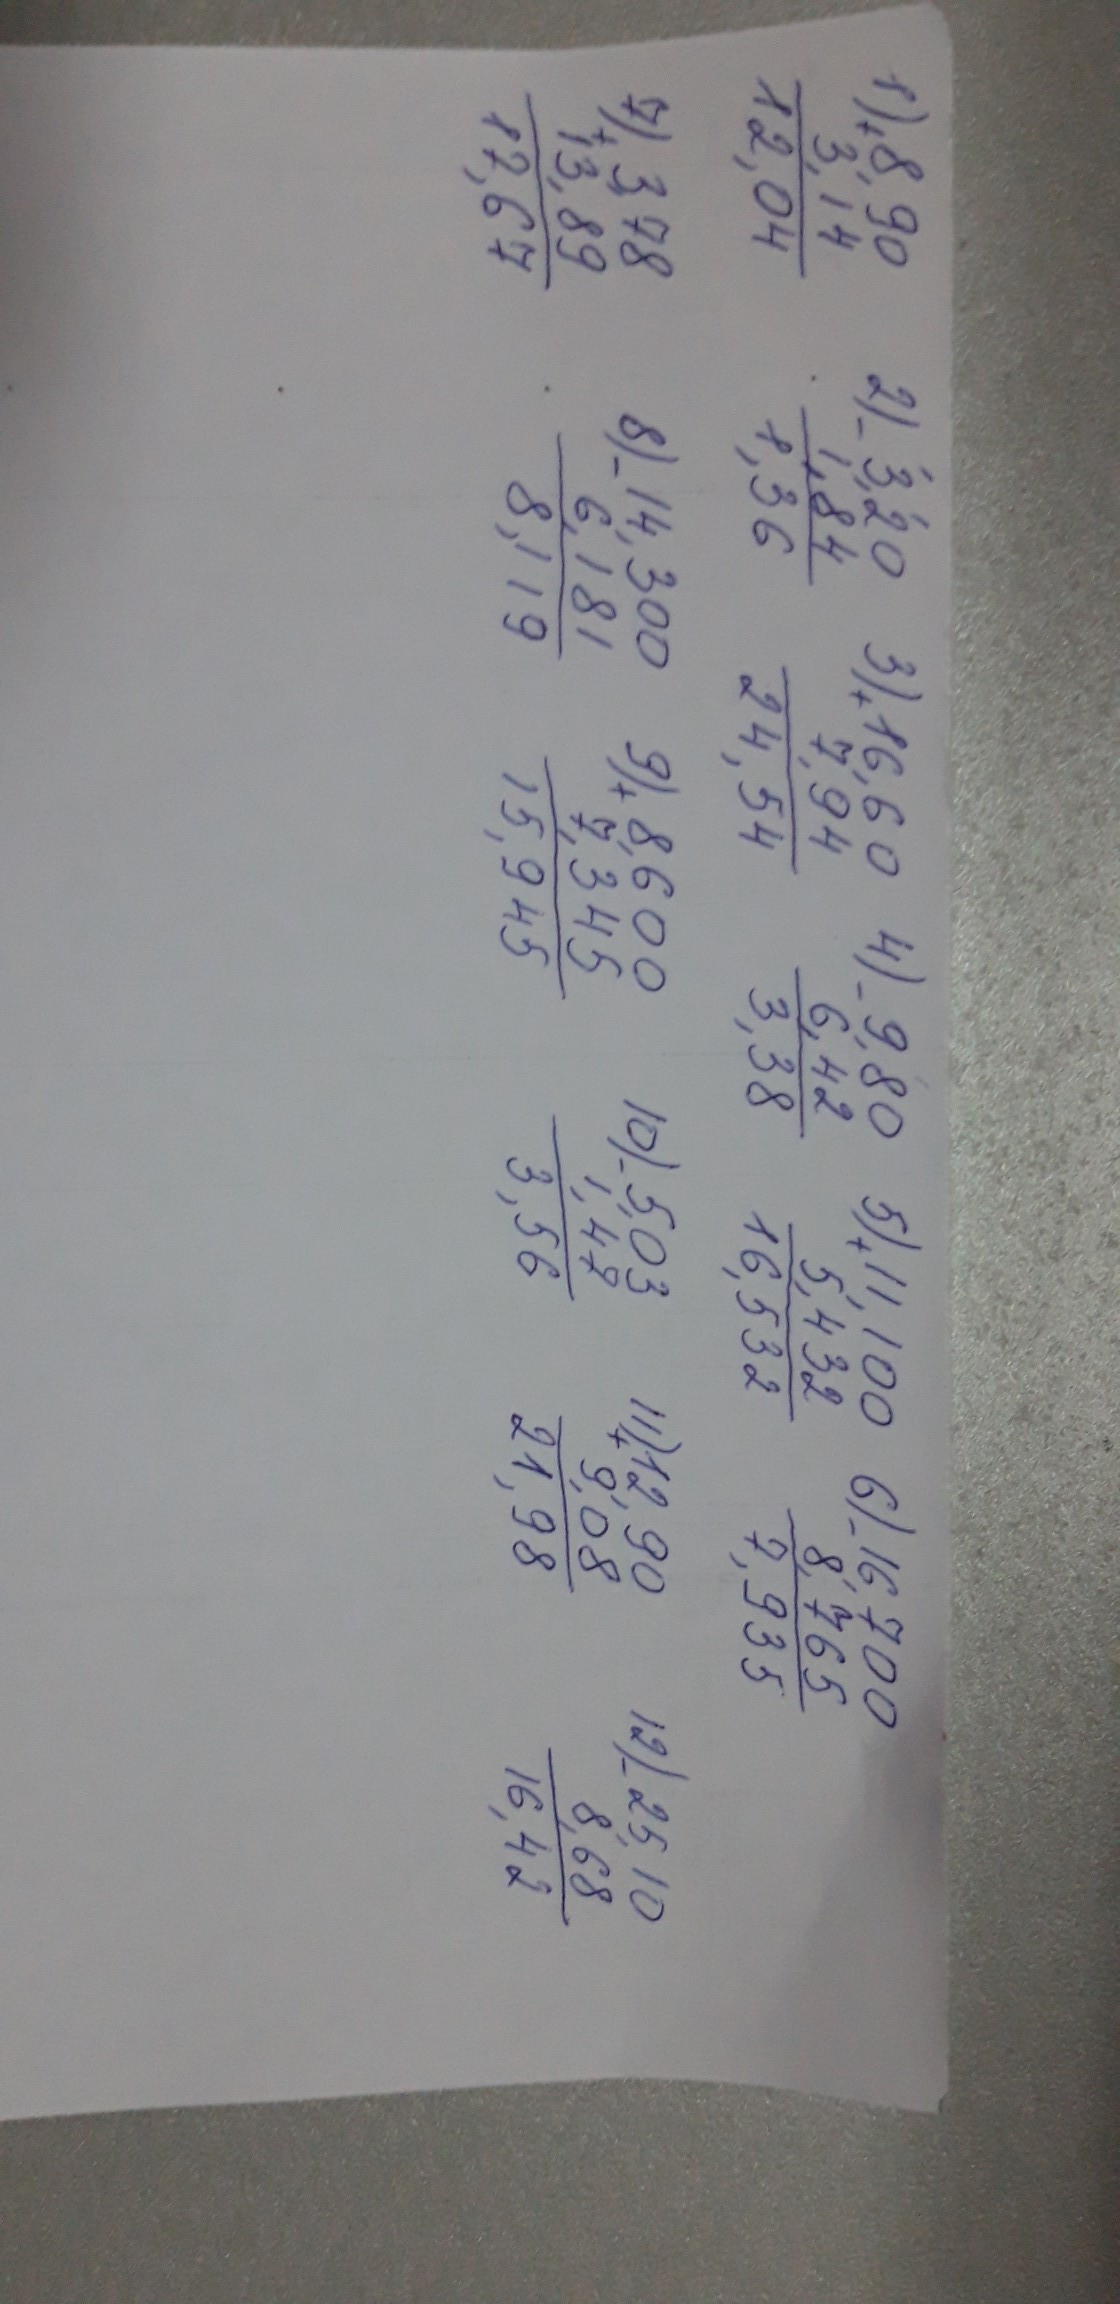 1) + 8,90 2) - 3,20 3) + 16,60 4) - 9,80 5) + 11,100 6) - 16,700
3,14 1,84 7,94 6,42 5,432 8,765
12,04 1,36 24,54 3,38 16,532 7,935
7) + 3,78 8) - 14,300 9) + 8,600 10) - 5,03 11) + 12,90 12) - 25,10
13,89 6,181 7,345 1,47 9,08 8,68
17,67 8,119 15,945 3,56 21,98 16,42